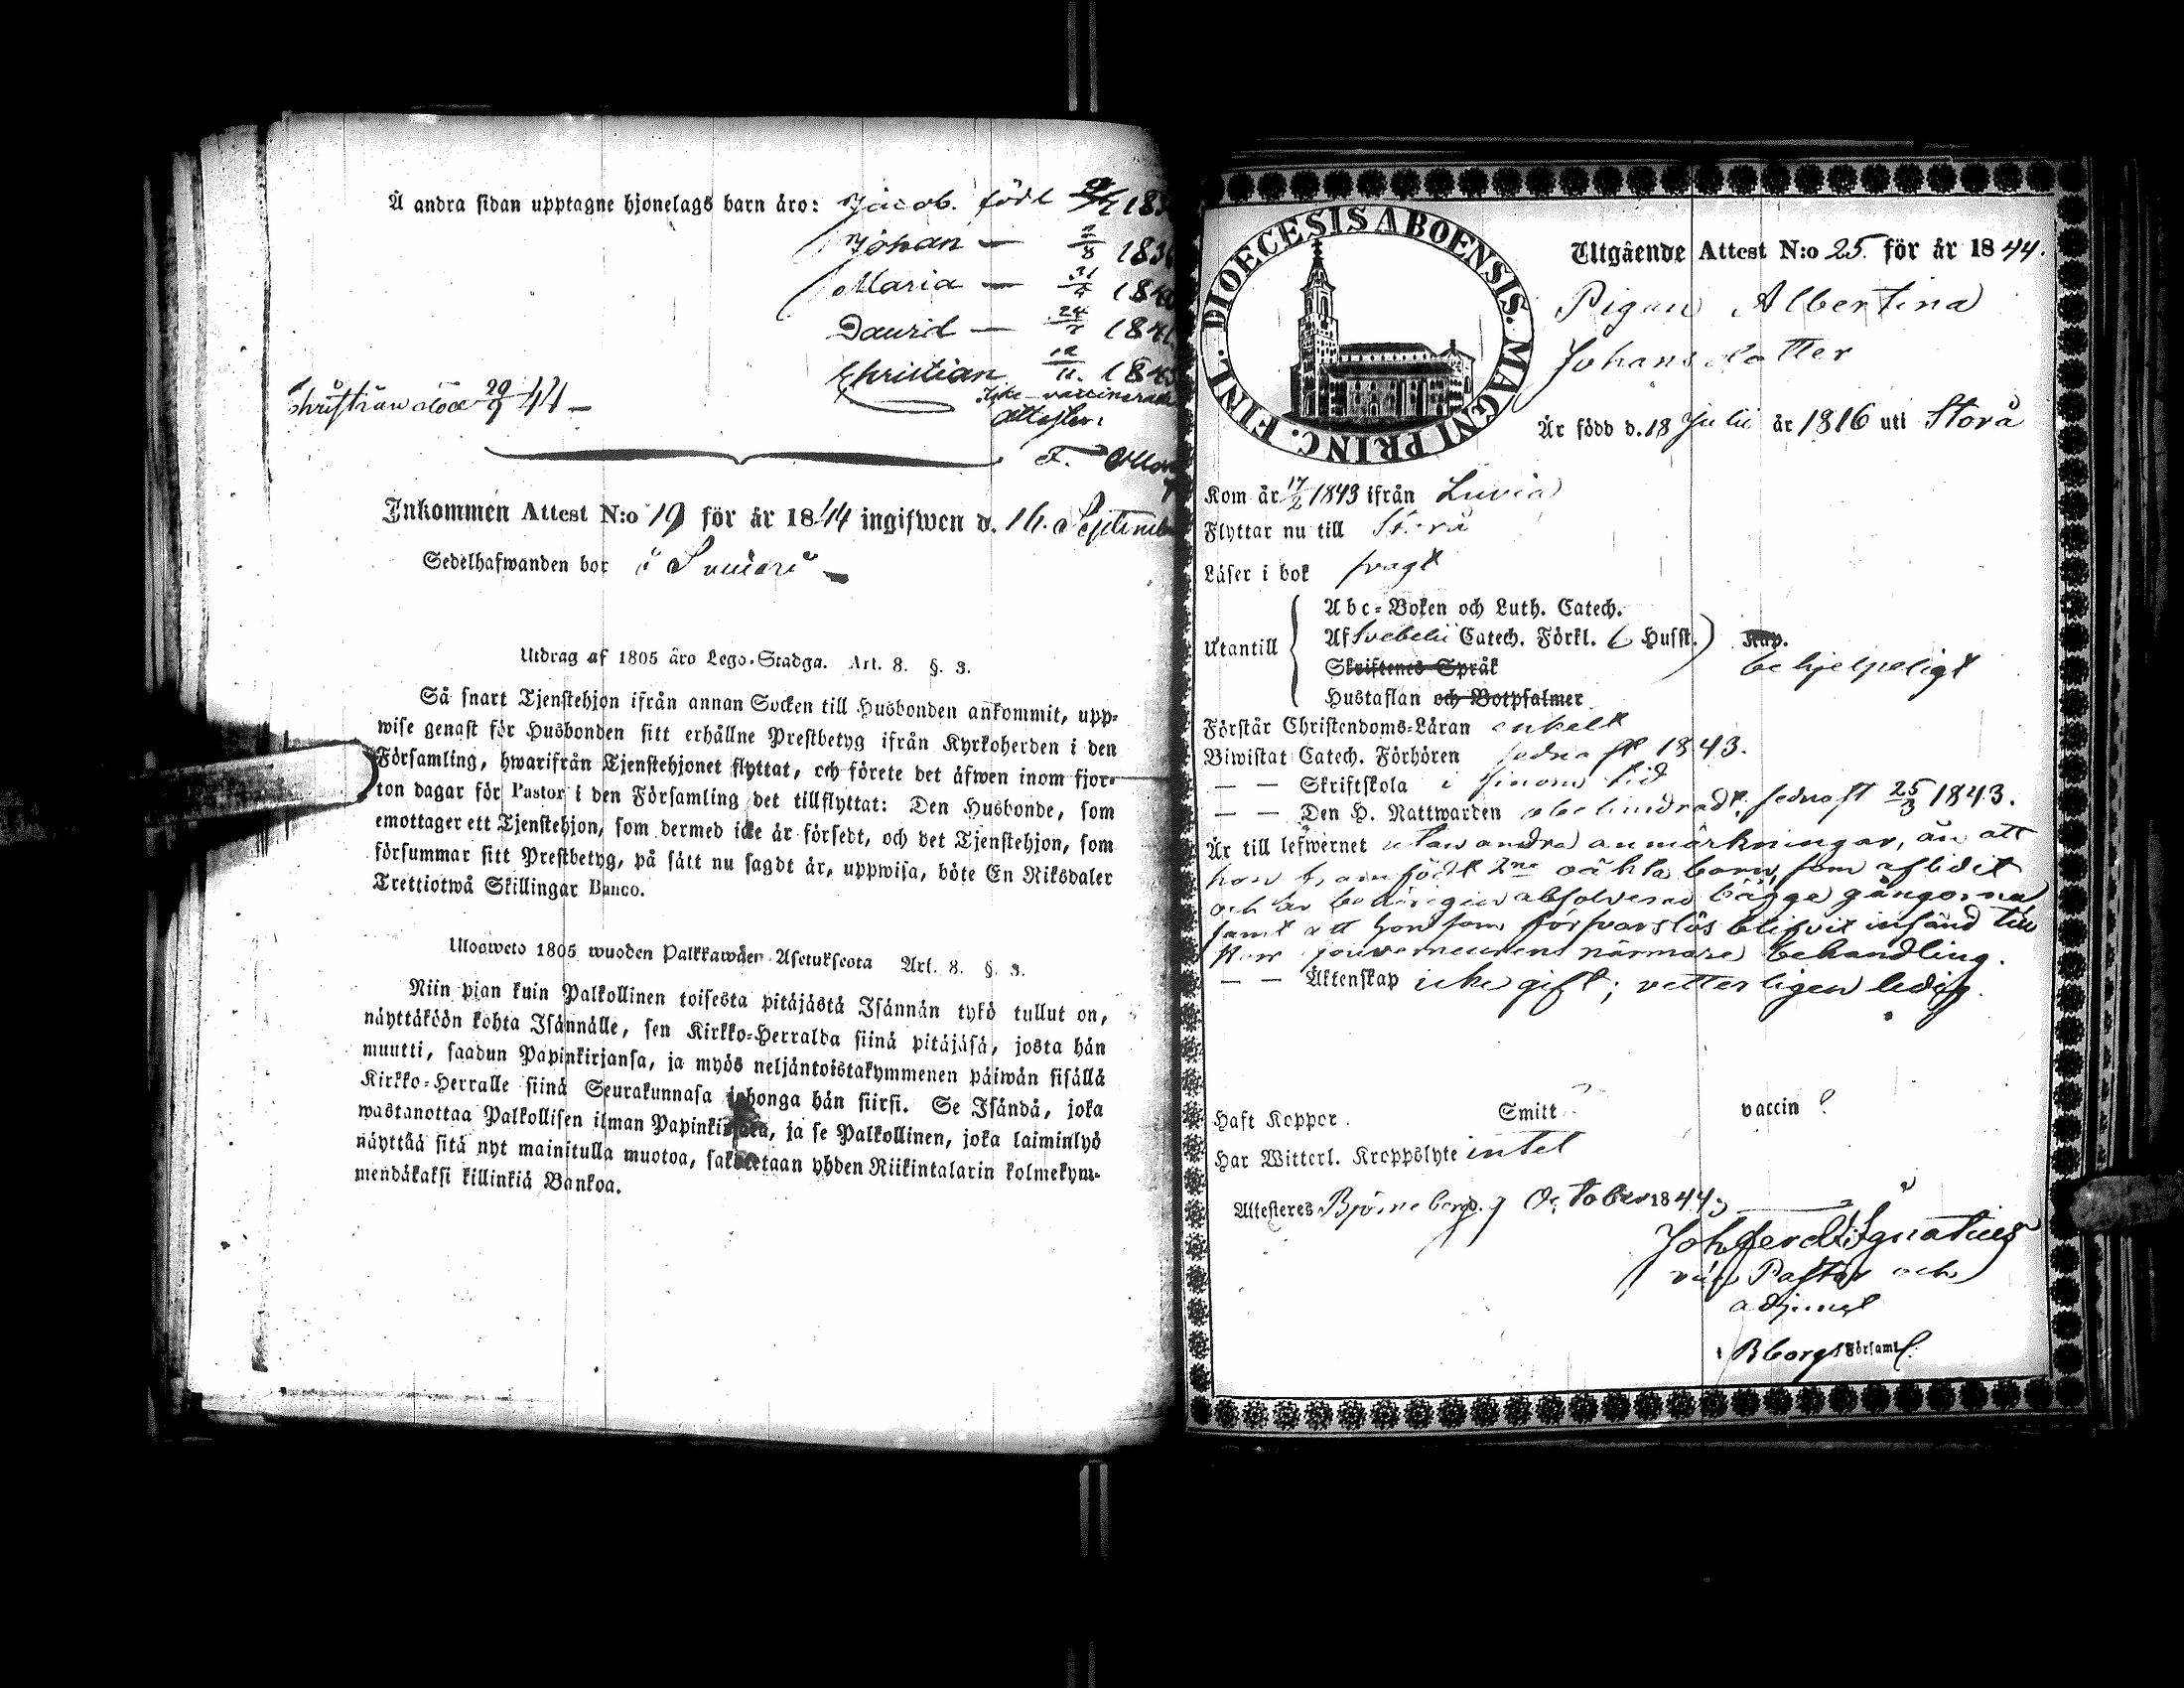 Å andra sidan upptagne hjonelags barn äro: Jacob. född
Johan — 2/8
Maria —
David —
Christian 12/11.
Icke vaccinerade
Attester:
Christian död 29/9 44 —
Inkommen Attest N:o 19 för år 1844 ingifwen d. 16. September
Sedelhafwanden bor å
Utdrag af 1805 åro Lego-Stadga. Art. 8. §. 3.
Så snart Tjenstehjon ifrån annan Socken till Husbonden ankommit, upp-
wise genast för Husbonden sitt erhållne Prestbetyg ifrån Kyrkoherden i den
Församling, hwarifrån Tjenstehjonet flyttat, och förete det äfwen inom fjor-
ton dagar för Pastor i den Församling det tillflyttat: Den Husbonde, som
emottager ett Tjenstehjon, som dermed icke är försedt, och det Tjenstehjon, som
försummar sitt Prestbetyg, på sätt nu sagdt är, uppwisa, böte En Riksdaler
Trettiotwå Skillingar Banco.
Ulooweto 1805 wuoden Palkkawäen Asetuksesta Art. 8. §. 3.
Niin pian kuin Palkollinen toisesta pitäjästä Isännän tykö tullut on,
näyttäköön kohta Isännälle, sen Kirkko-Herralda siinä pitäjäsä, josta hän
muutti, saadun Papinkirjansa, ja myös neljäntoistakymmenen päiwän sisällä
Kirkko-Herralle siinä Seurakunnasa johonga hän siirsi. Se Isändä, joka
wastanottaa Palkollisen ilman Papinkirjata, ja se Palkollinen, joka laiminlyö
näyttää sitä nyt mainitulla muotoa, sakotetaan yhden Riikintalarin kolmekym-
mendäkaksi killinkiä Bankoa.
DIOECESIS ABOENSIS. MAGNI PRINC. FINL.
Utgående Attest N:o 25. för år 1844.
Pigan Albertina
Johansdotter
Är född d. 18 Julii år 1816 uti Storå
Kom år 17/2 1843 ifrån Luvia
Flyttar nu till Storå
Läser i bok svagt
Utantill
Abc-Boken och Luth. Catech.
Af Svebelii Catech. Förkl. 6 Husst. Kap.
Skriftenes Språk
behjelpeligt
Hustaflan och Botpsalmer
Förstår Christendoms-Läran enkelt
Biwistat Catech. Förhören sednast 1843.
— — Skriftskola i sinom tid
— — Den H. Nattwarden obehindradt, sednast 25/3 1843.
Är till lefwernet utan andra anmärkningar, än att
hon framfödt 2ne oäkta barn, som aflidit
och är behörigen absolverad bägge gångorna
samt att hon som försvarslös blifvit insänd till
Herr Gouverneurens närmare behandling.
— — Äktenskap icke gift; vetterligen ledig.
Haft Koppor. Smitt ? vaccin ?
Har Witterl. Kroppslyte intet
Attesteres Björneborg d. 7 October 1844,
Joh Ignatius
vice Pastor och
adjunct
i Bborgs Församl.